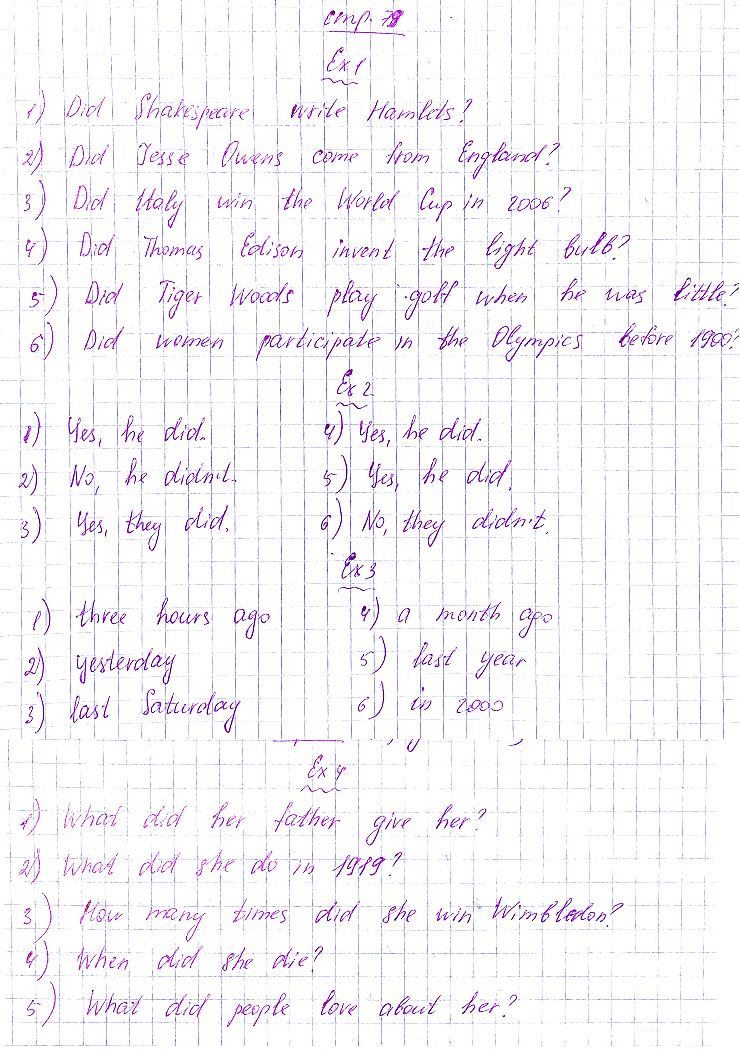 стр. 78
Ex 1
1) Did Shakespeare write Hamlets?
2) Did Jesse Owens come from England?
3) Did Italy win the World Cup in 2006?
4) Did Thomas Edison invent the light bulb?
5) Did Tiger Woods play golf when he was little?
6) Did women participate in the Olympics before 1900?
Ex 2
1) Yes, he did. 4) Yes, he did.
2) No, he didn't. 5) Yes, he did.
3) Yes, they did. 6) No, they didn't.
Ex 3
1) three hours ago 4) a month ago
2) yesterday 5) last year
3) last Saturday 6) in 2000
Ex 4
1) What did her father give her?
2) What did she do in 1919?
3) How many times did she win Wimbledon?
4) When did she die?
5) What did people love about her?